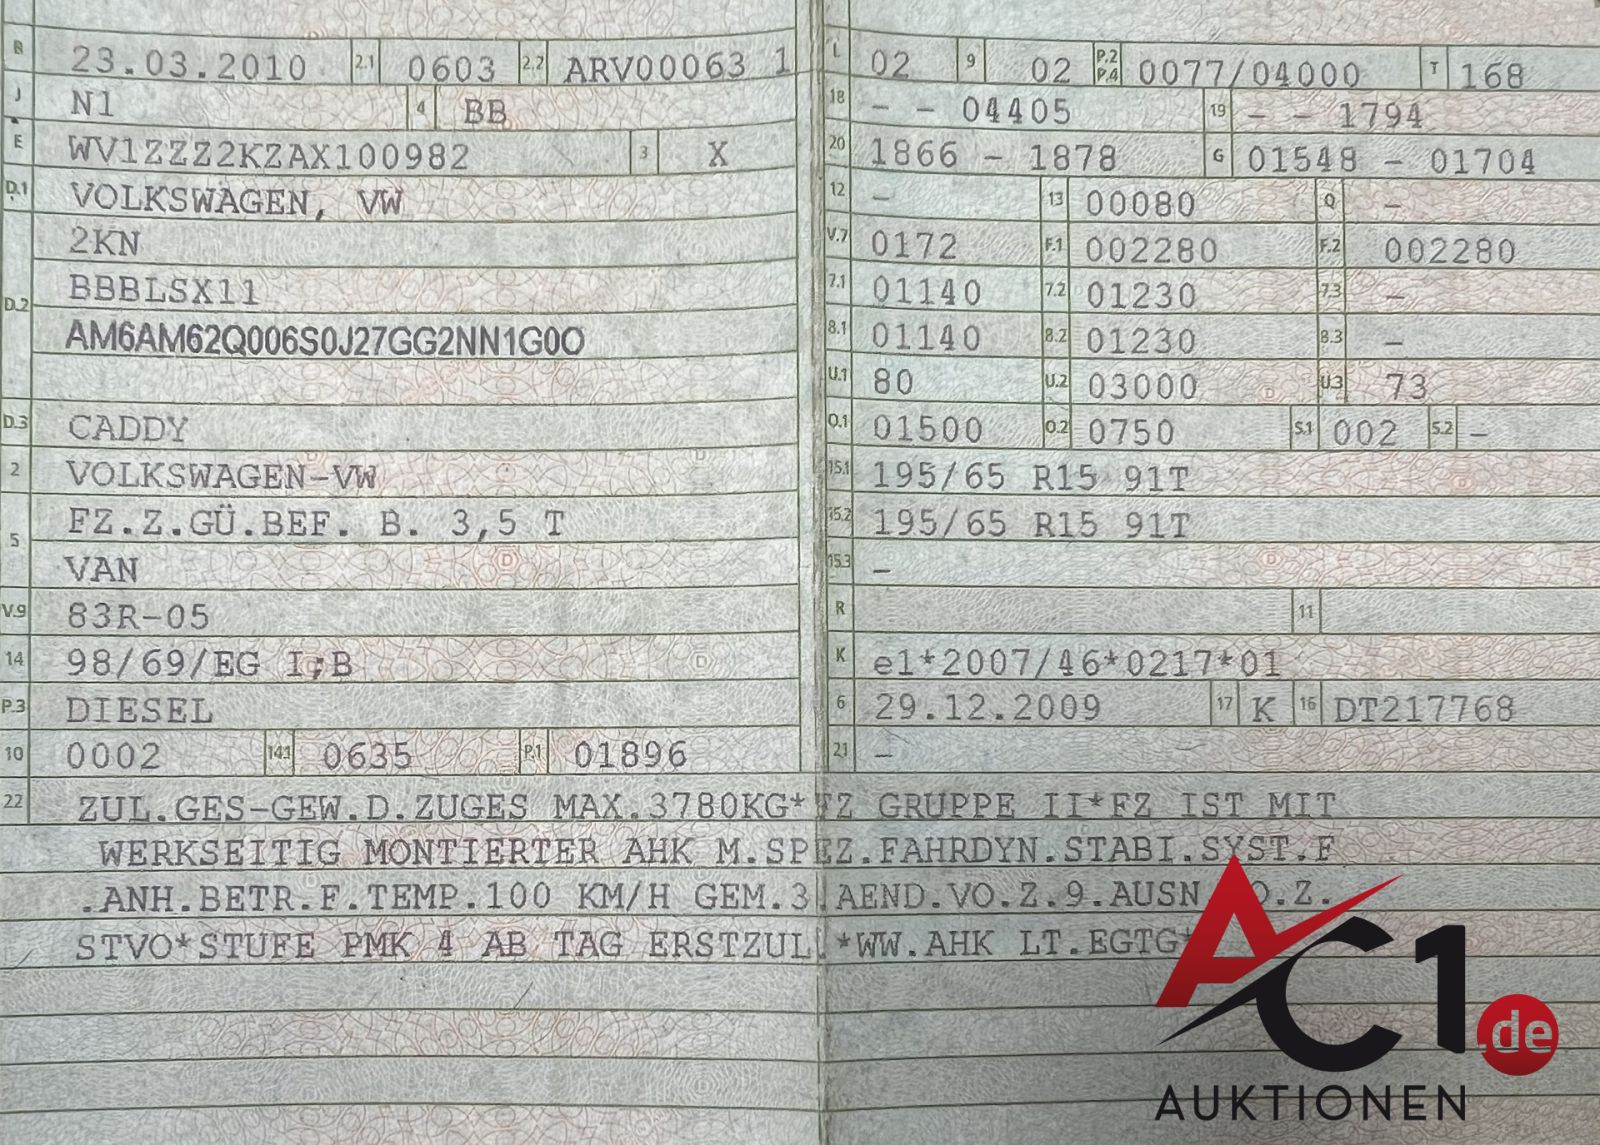 B 23.03.2010 2.1 0603 2.2 ARV00063 1
J N1 4 BB
E WV1ZZZ2KZAX100982 3 X
D.1 VOLKSWAGEN, VW
2KN
D.2 BBBLSX11
AM6AM62Q006S0J27GG2NN1G0O
D.3 CADDY
2 VOLKSWAGEN-VW
5 FZ.Z.GÜ.BEF. B. 3,5 T
VAN
V.9 83R-05
14 98/69/EG I;B
P.3 DIESEL
10 0002 14.1 0635 P.1 01896
L 02 9 02 P.2 P.4 0077/04000 T 168
18 - - 04405 19 - - 1794
20 1866 - 1878 G 01548 - 01704
12 - 13 00080 Q -
V.7 0172 F.1 002280 F.2 002280
7.1 01140 7.2 01230 7.3 -
8.1 01140 8.2 01230 8.3 -
U.1 80 U.2 03000 U.3 73
O.1 01500 O.2 0750 S.1 002 S.2 -
15.1 195/65 R15 91T
15.2 195/65 R15 91T
15.3 -
R 11
K e1*2007/46*0217*01
6 29.12.2009 17 K 16 DT217768
21 -
22 ZUL.GES-GEW.D.ZUGES MAX.3780KG*FZ GRUPPE II*FZ IST MIT
WERKSEITIG MONTIERTER AHK M.SPEZ.FAHRDYN.STABI.SYST.F
.ANH.BETR.F.TEMP.100 KM/H GEM.3.AEND.VO.Z.9.AUSN O.Z.
STVO*STUFE PMK 4 AB TAG ERSTZUL.*WW.AHK LT.EGTG*
AC1.de
AUKTIONEN